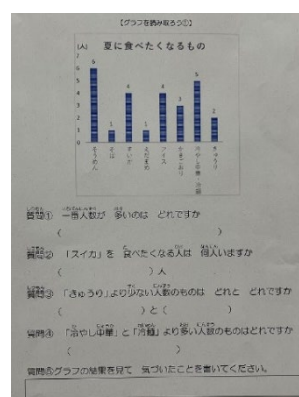 【グラフを読み取ろう①】
(人) 夏に食べたくなるもの
7
6
5
4
3
2
1
0
6
1
4
1
4
3
5
2
そうめん
そば
すいか
えだまめ
アイス
かき氷
冷やし中華
きゅうり
質問① 一番人数が 多いのは どれですか
( )
質問② 「スイカ」を 食べたくなる人は 何人いますか
( )人
質問③ 「きゅうり」より少ない人数のものは どれと どれですか
( )と( )
質問④ 「冷やし中華」と「 」より多い人数のものはどれですか
( )
質問⑤グラフの結果を見て 気づいたことを書いてください。